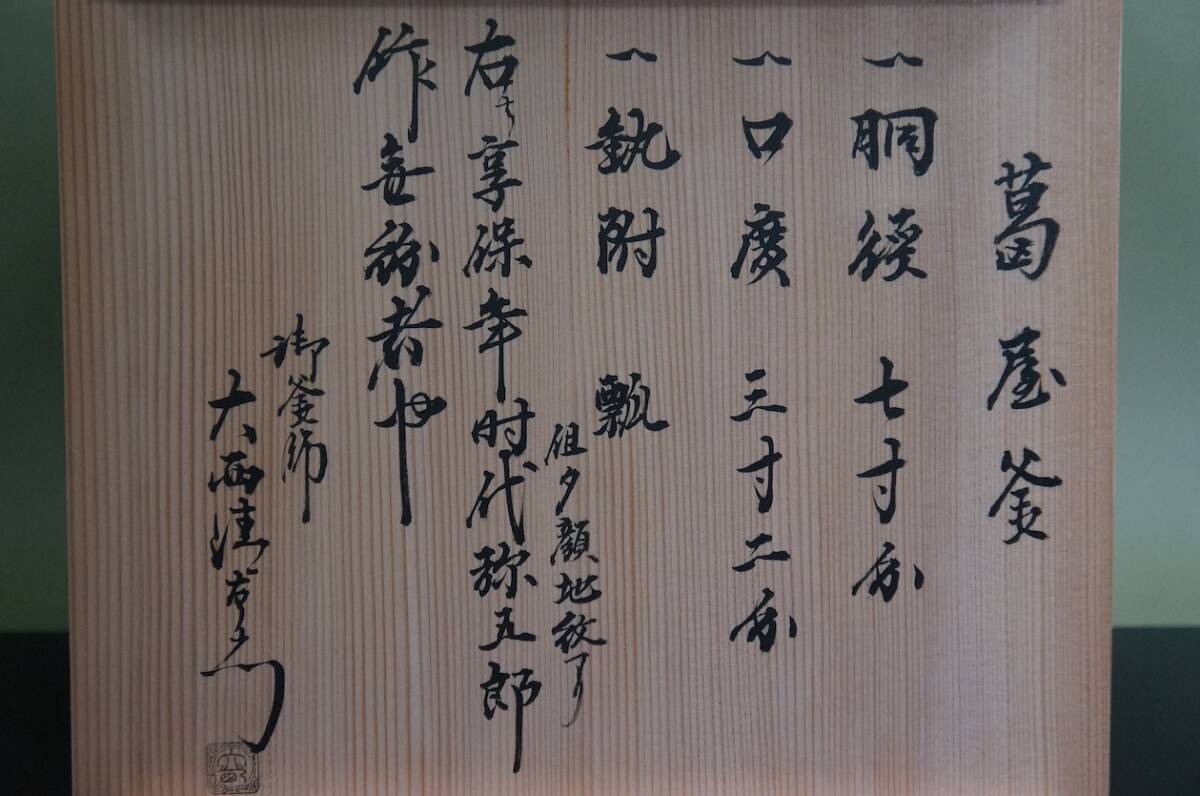 葛屋釜
一胴径 七寸分
一口廣 三寸二分
一執附 瓢
但夕顔地紋アリ
右ハ享保年時代弥五郎
作無紛者也
御釜師
大西清右衛門